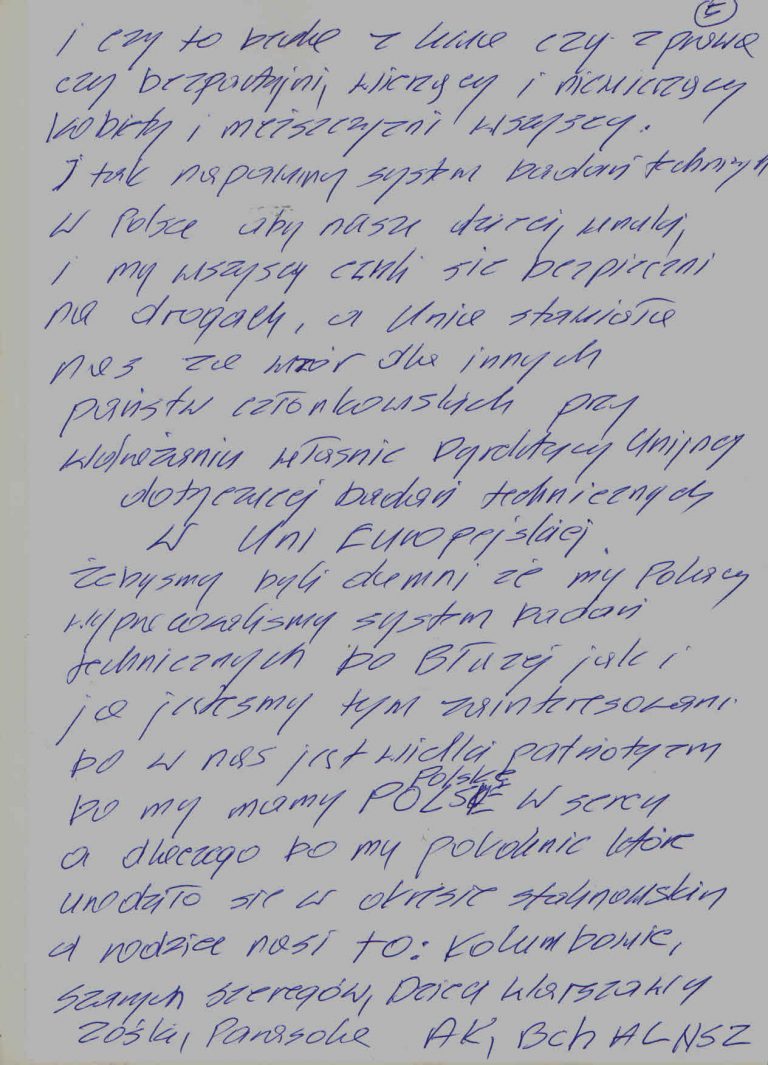 E
i czy to będzie z lewa czy z prawa
czy bezpartyjni, wierzący i niewierzący
kobiety i męiszczyzni wszyszcy.
I tak naprawmy system badań technicznych
w Polsce aby nasze dzieci, wnuki,
i my wszyscy czuli sie bezpieczni
na drogach, a Unia stawiała
nas za wzór dla innych
państw członkowskich przy
wdrażaniu właśnie Dyrektywy Unijnej
dotyczącej badań technicznych
w Uni Europejskiej
Żebysmy byli dumni że my Polacy
wypracowalismy system badań
technicznych bo Błużej jak i
ja jestesmy tym zainteresowani.
bo w nas jest wielki patriotyzm
Polskę
bo my mamy POLSKE w sercu
a dlaczego bo my pokolenie które
urodziło sie w okresie stalinowskim
a rodzice nasi to: Kolumbowie,
szarych szeregów, Dzieci Warszawy
Zośki, Parasola AK, BCh AL NSZ